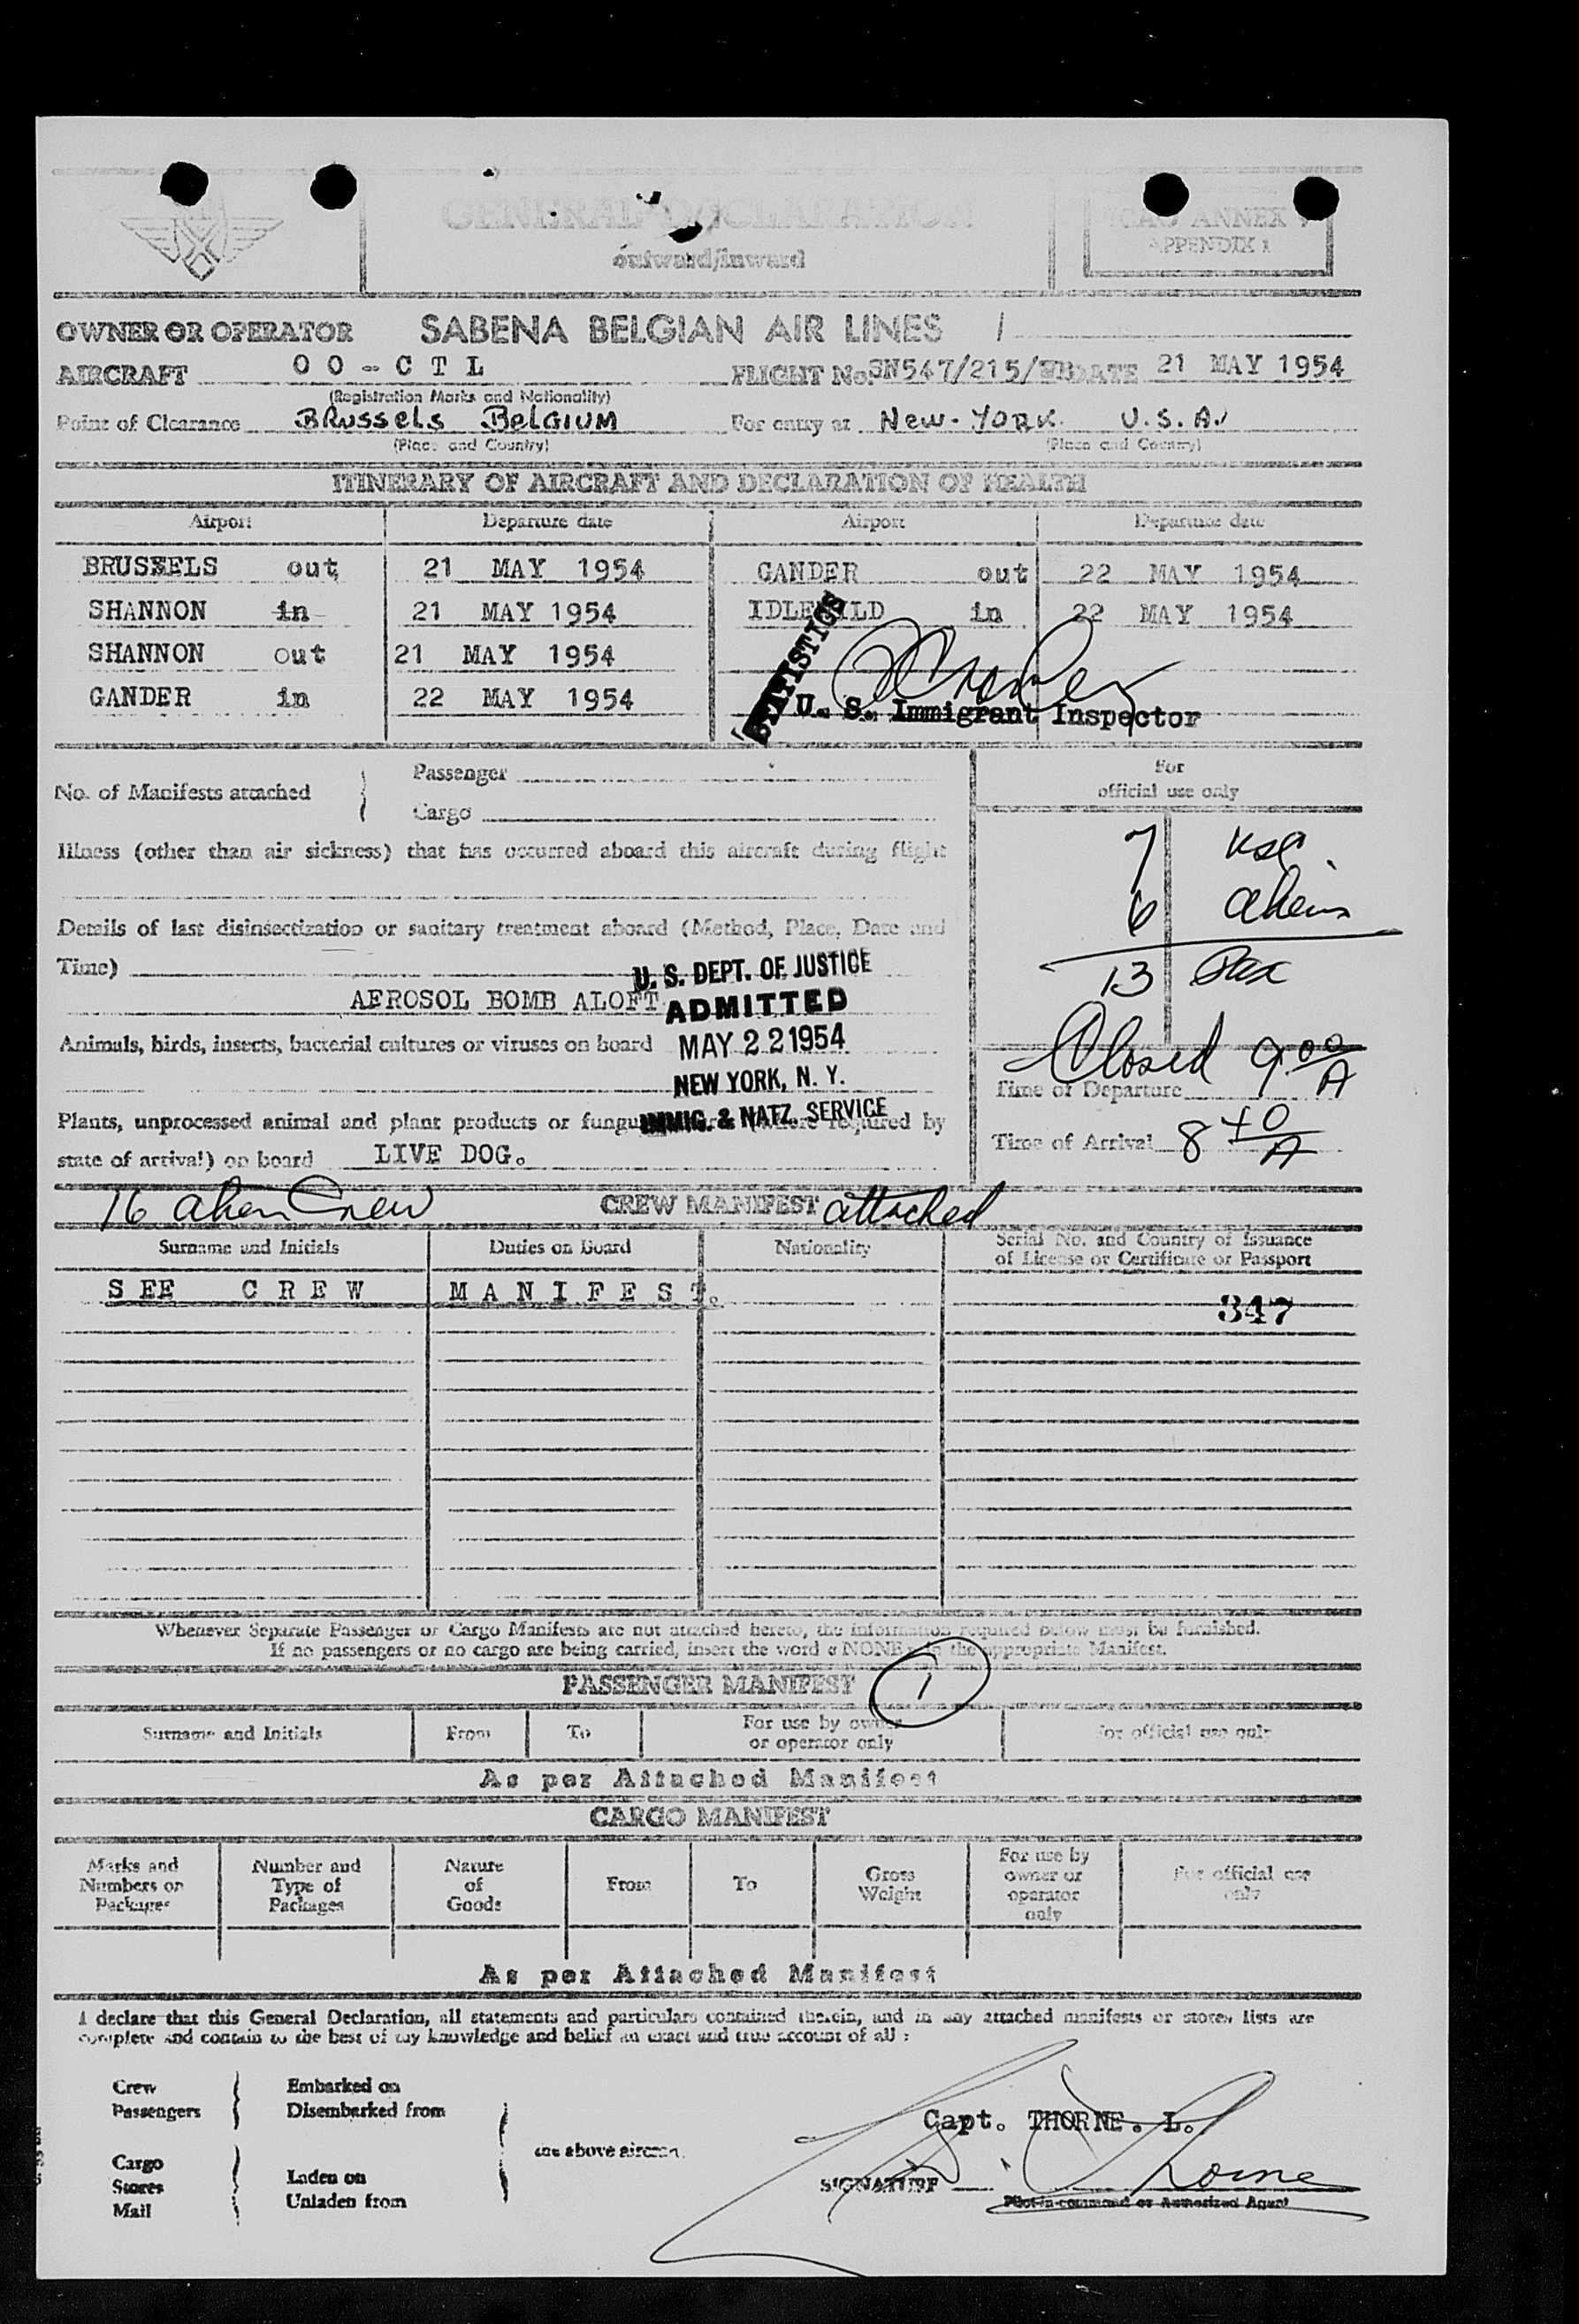 GENERAL DECLARATION
outward/inward
ICAO ANNEX 9
APPENDIX 1
OWNER OR OPERATOR SABENA BELGIAN AIR LINES /
AIRCRAFT OO-CTL FLIGHT No. SN547/215/ DATE 21 MAY 1954
(Registration Marks and Nationality)
Point of Clearance BRussels BelGIUM For entry at New-YORK. U.S.A.
(Place and Country) (Place and Country)
ITINERARY OF AIRCRAFT AND DECLARATION OF HEALTH
Airport Departure date Airport Departure date
BRUSSELS out 21 MAY 1954 GANDER out 22 MAY 1954
SHANNON in 21 MAY 1954 IDLEWILD in 22 MAY 1954
SHANNON out 21 MAY 1954
GANDER in 22 MAY 1954
STATISTICS
U. S. Immigrant Inspector
No. of Manifests attached
Passenger
Cargo
For
official use only
Illness (other than air sickness) that has occurred aboard this aircraft during flight
7 USC
6 aliens
13 Pax
Details of last disinsectization or sanitary treatment aboard (Method, Place, Date and
Time)
AEROSOL BOMB ALOFT
U. S. DEPT. OF JUSTICE
ADMITTED
MAY 22 1954
NEW YORK, N. Y.
IMMIG. & NATZ. SERVICE
Animals, birds, insects, bacterial cultures or viruses on board
Closed 9 00 A
Time of Departure
Plants, unprocessed animal and plant products or fungus (where required by
state of arrival) on board LIVE DOG.
Time of Arrival 8 40 A
16 alien Crew CREW MANIFEST attached
Surname and Initials Duties on Board Nationality Serial No. and Country of Issuance
of License or Certificate or Passport
SEE CREW MANIFEST.
347
Whenever Separate Passenger or Cargo Manifests are not attached hereto, the information required below must be furnished.
If no passengers or no cargo are being carried, insert the word « NONE » in the appropriate Manifest.
PASSENGER MANIFEST 1
Surname and Initials From To For use by owner
or operator only For official use only
As per Attached Manifest
CARGO MANIFEST
Marks and
Numbers on
Packages
Number and
Type of
Packages
Nature
of
Goods
From
To
Gross
Weight
For use by
owner or
operator
only
For official use
only
As per Attached Manifest
I declare that this General Declaration, all statements and particulars contained therein, and in any attached manifests or stores lists are
complete and contain to the best of my knowledge and belief an exact and true account of all :
Crew
Passengers
Embarked on
Disembarked from
Cargo
Stores
Mail
Laden on
Unladen from
the above aircraft.
Capt. THORNE. L.
SIGNATURE Thorne
Pilot-in-command or Authorized Agent